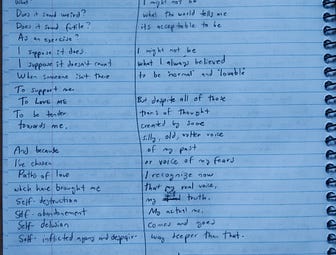 What
Does it sound weird?
Does it sound futile?
As an exercise?
I suppose it does.
I suppose it doesn't count
When someone isn't there
To support me.
To Love me
To be tender
towards me.
And because
I've chosen
Paths of love
which have brought me
Self-destruction
Self-abandonement
Self-delusion
Self-inflicted agony and despair.
I might not be
what the world tells me
its acceptable to be
I might not be
what I always believed
to be 'normal' and 'lovable'
But despite all of those
trains of thought
created by some
silly, old, rotten voice
of my past
or voice of my fears
I recognize now
that my real voice,
my truth.
My actual me,
comes and goes
way deeper than that.